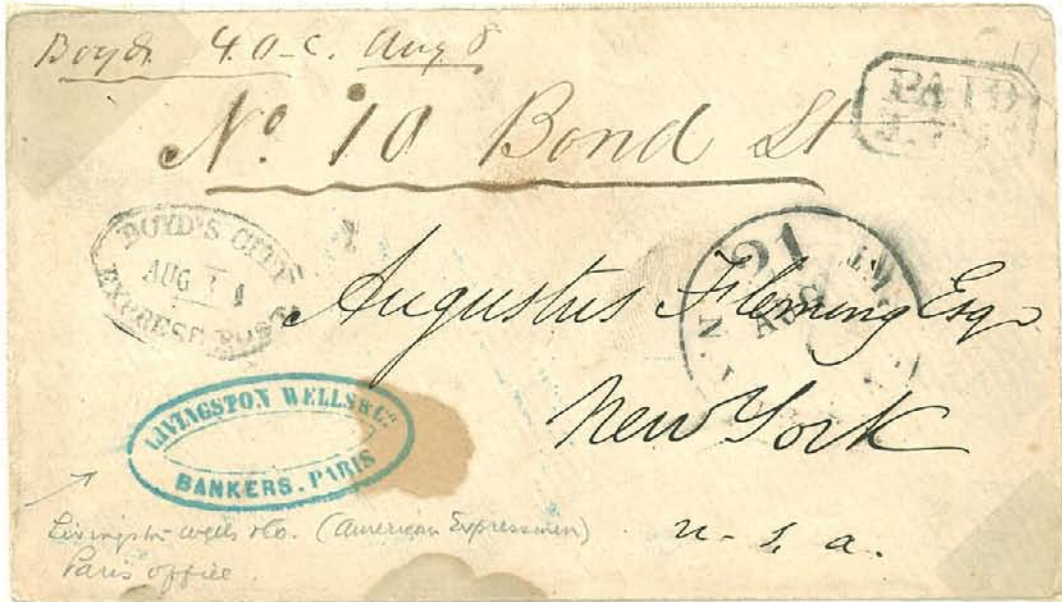 Boyds 40-c. Aug 8
PAID
No. 10 Bond St
BOYD'S CITY EXPRESS POST
AUG
21
AUG
N.
Augustus Fleming Esqr
New York
LIVINGSTON WELLS & Co.
BANKERS. PARIS
Livingston Wells & Co. (American Expressmen)
Paris office.
U. S. A.